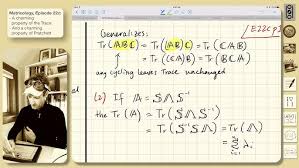 Matrixology, Episode 22c:
- A charming
property of the Trace
- And a charming
property of Pratchett
E22cp
Generalizes:
Tr(ABC) = Tr(ABC) = Tr(CAB)
= Tr(CAB) = Tr(BCA)
any cycling leaves Trace unchanged
(2) If A = SΛS⁻¹
the Tr(A) = Tr(SΛS⁻¹)
= Tr(S⁻¹SΛ) = Tr(Λ)
= Σ λi